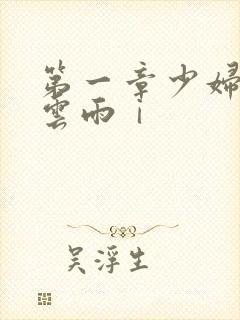 第一章少婦
雲雨｜
吴浮生